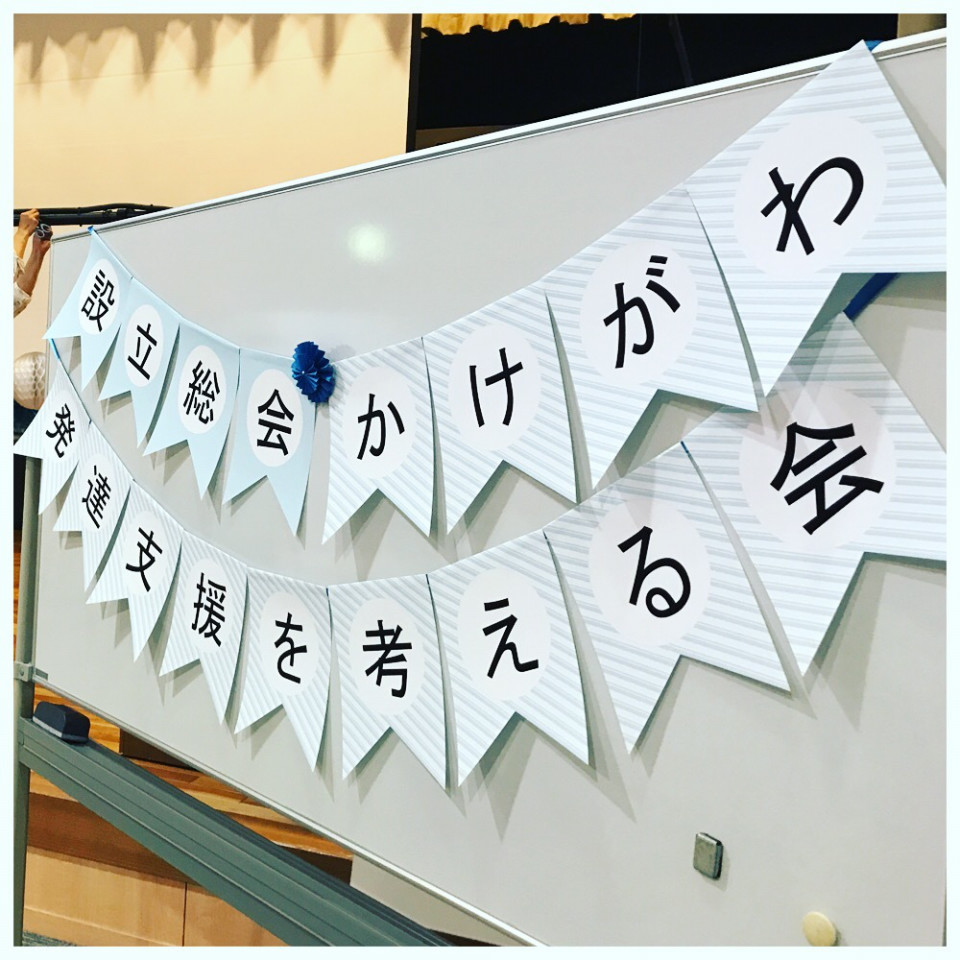 設立総会かけがわ
発達支援を考える会